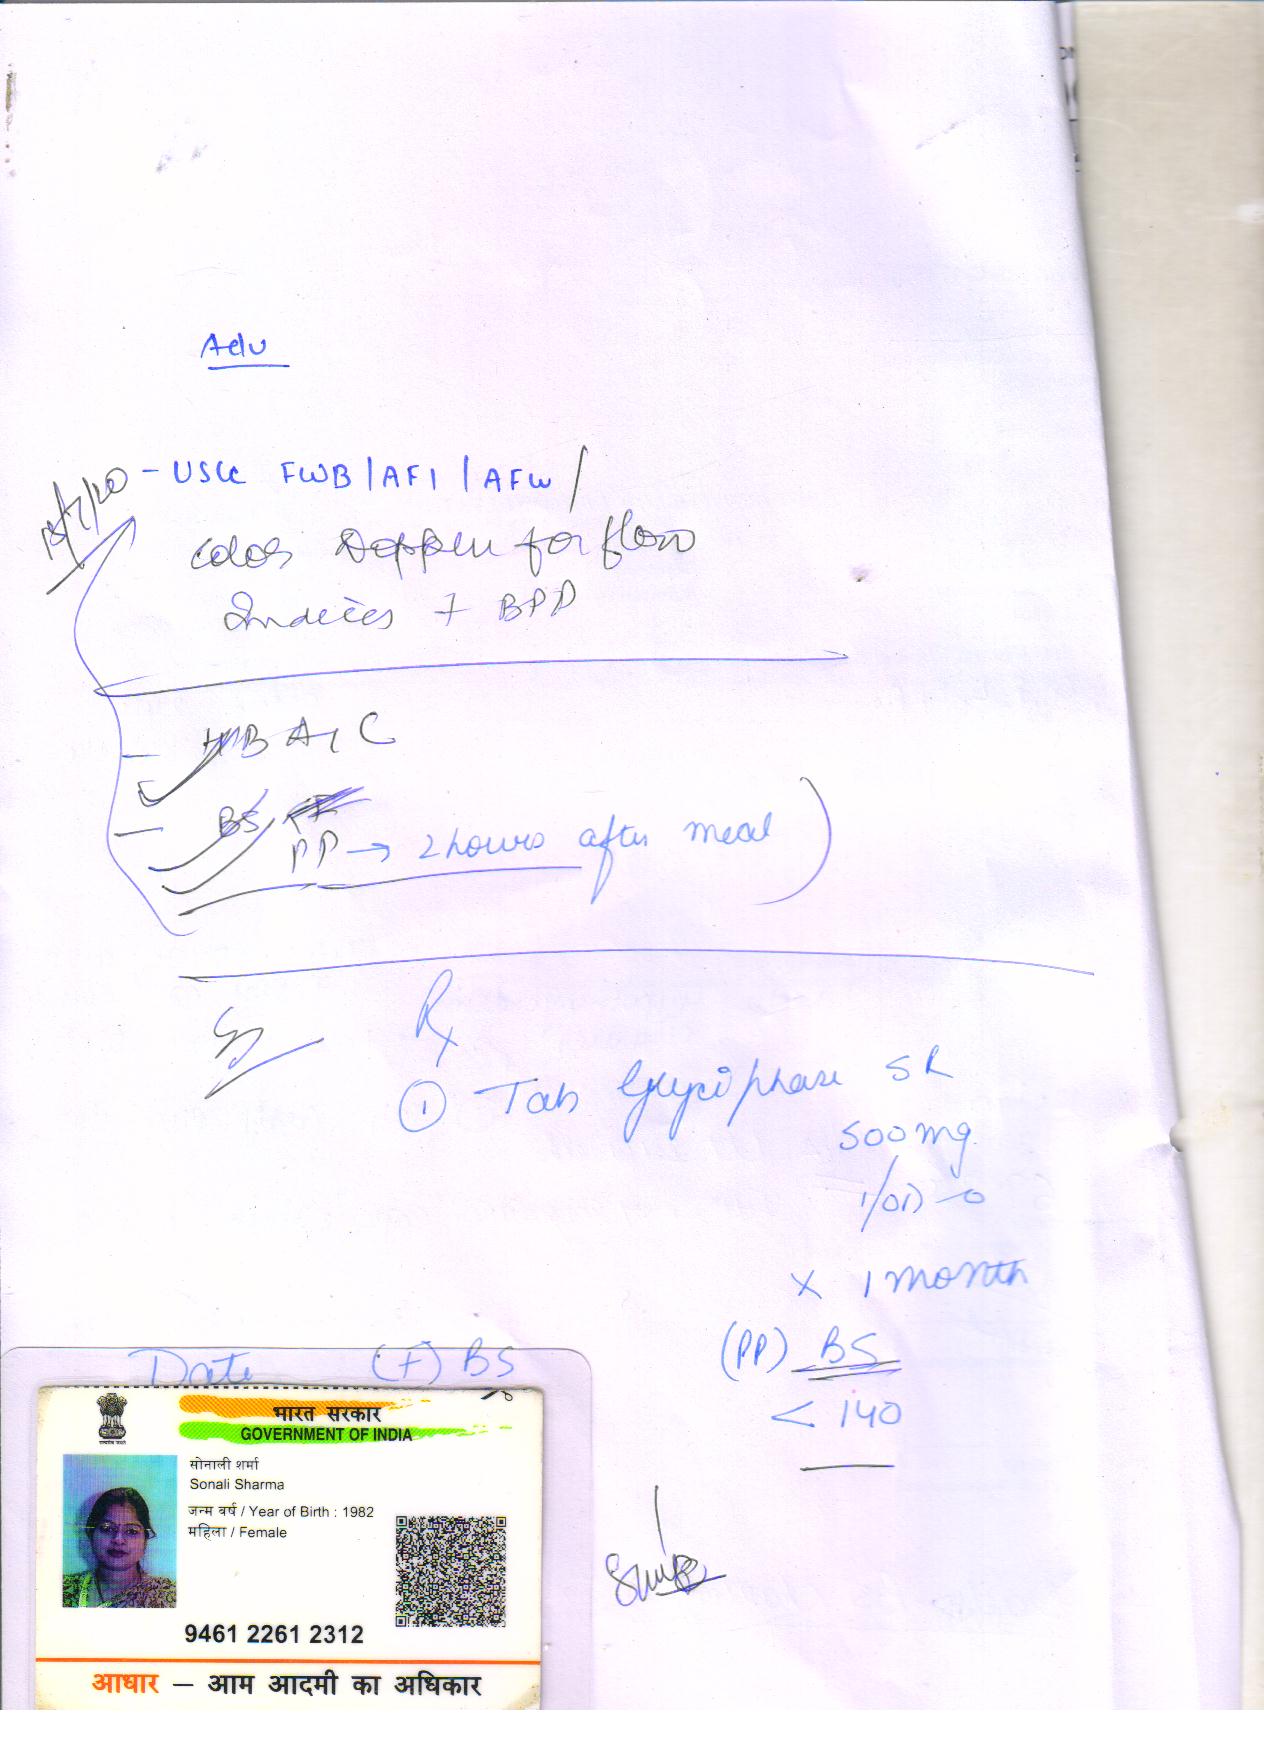 Adv
- USG FWB / AFI / AFW /
color Doppler for flow
Indices + BPP
HBA1C
BS
PP → 2 hours after meal
Rx
① Tab Glyciphase SR
500 mg
1/OD
x 1 month
Date (F) BS
(PP) BS
< 140
भारत सरकार
GOVERNMENT OF INDIA
सोनाली शर्मा
Sonali Sharma
जन्म वर्ष / Year of Birth : 1982
महिला / Female
9461 2261 2312
आधार — आम आदमी का अधिकार